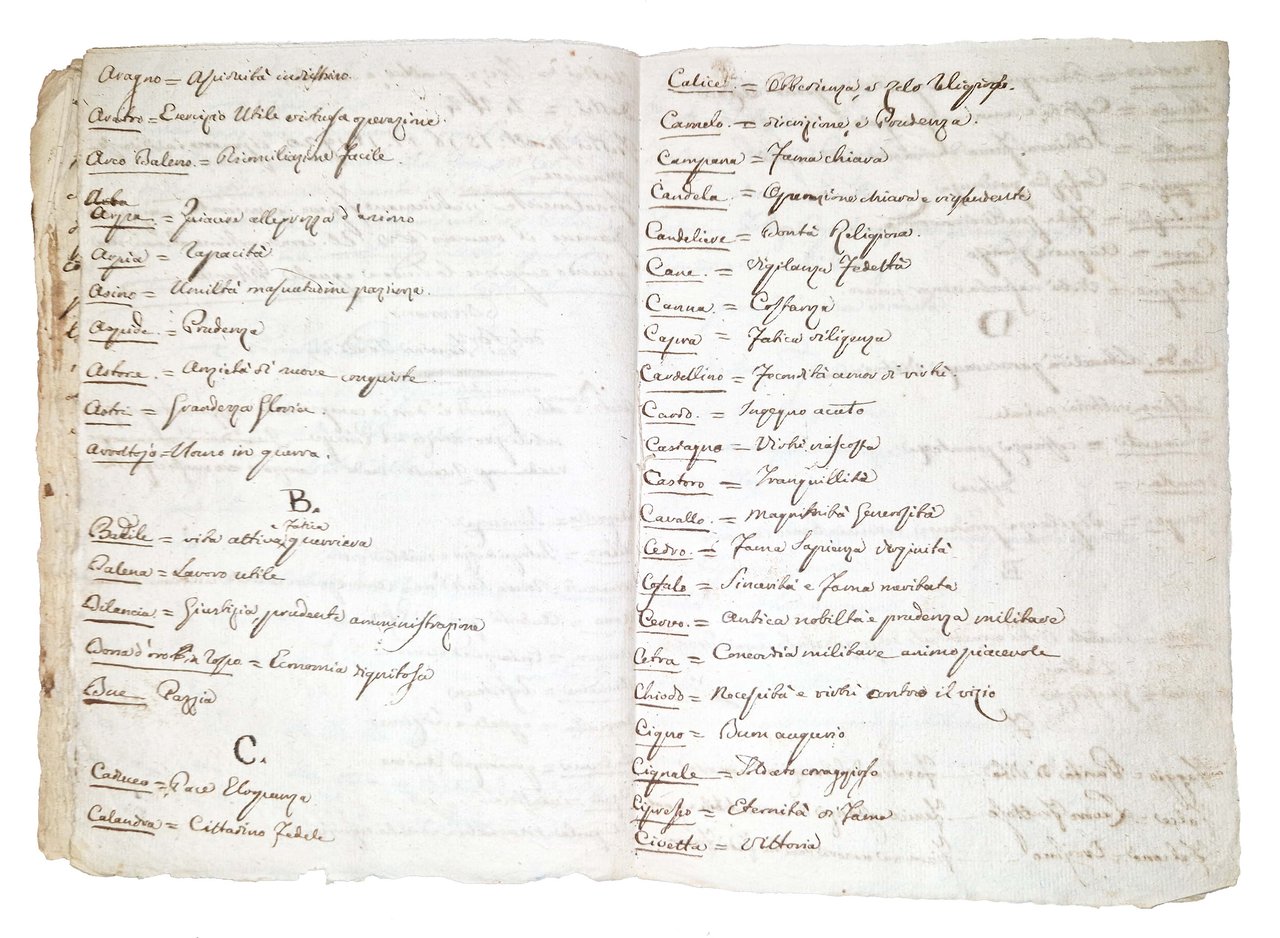 Aragno = Assiduità
Aratro = Esercizio Utile virtuosa operazione.
Arco Baleno. = Riconciliazione facile.
Arpa = Soave allegrezza d'animo
Arpia = Rapacità
Asino = Umiltà mansuetudine pazienza.
Aspide. = Prudenza
Astore. = Anzietà di nuove conquiste.
Astri = Grandezza Gloria
Avoltojo = Uomo in guerra.
B.
fatica
Badile = vita attiva, guerriera
Balena = Lavoro utile
Bilancia = Giustizia, prudente amministrazione
Borsa d'oro = Economia dignitosa
Bue Pazzia
C.
Caduceo = Pace Eloquenza
Calandra = Cittadino Fedele
Calice. = Obbedienza, e Zelo Religioso.
Camelo. = discrizione, e Prudenza.
Campana = Fama chiara
Candela = Operazione chiara e risplendente
Candeliere = Bontà Religiosa.
Cane. = Vigilanza Fedeltà
Canna = Costanza
Capra = Fatica diligenza
Cardellino = Fecondità amor di virtù.
Cardo. = Ingegno acuto
Castagno = Virtù nascosta
Castoro = Tranquillità
Cavallo. = Magnanimità Generosità
Cedro. = Fama Sapienza virginità
Cefalo = Sincerità e Fama meritata
Cervo. = Antica nobiltà e prudenza militare
Cetra = Concordia militare animo piacevole
Chiodo = Necessità e virtù contro il vizio
Cigno = Buon augurio
Cignale = Soldato coraggioso
Cipresso = Eternità di Fama
Civetta = Vittoria